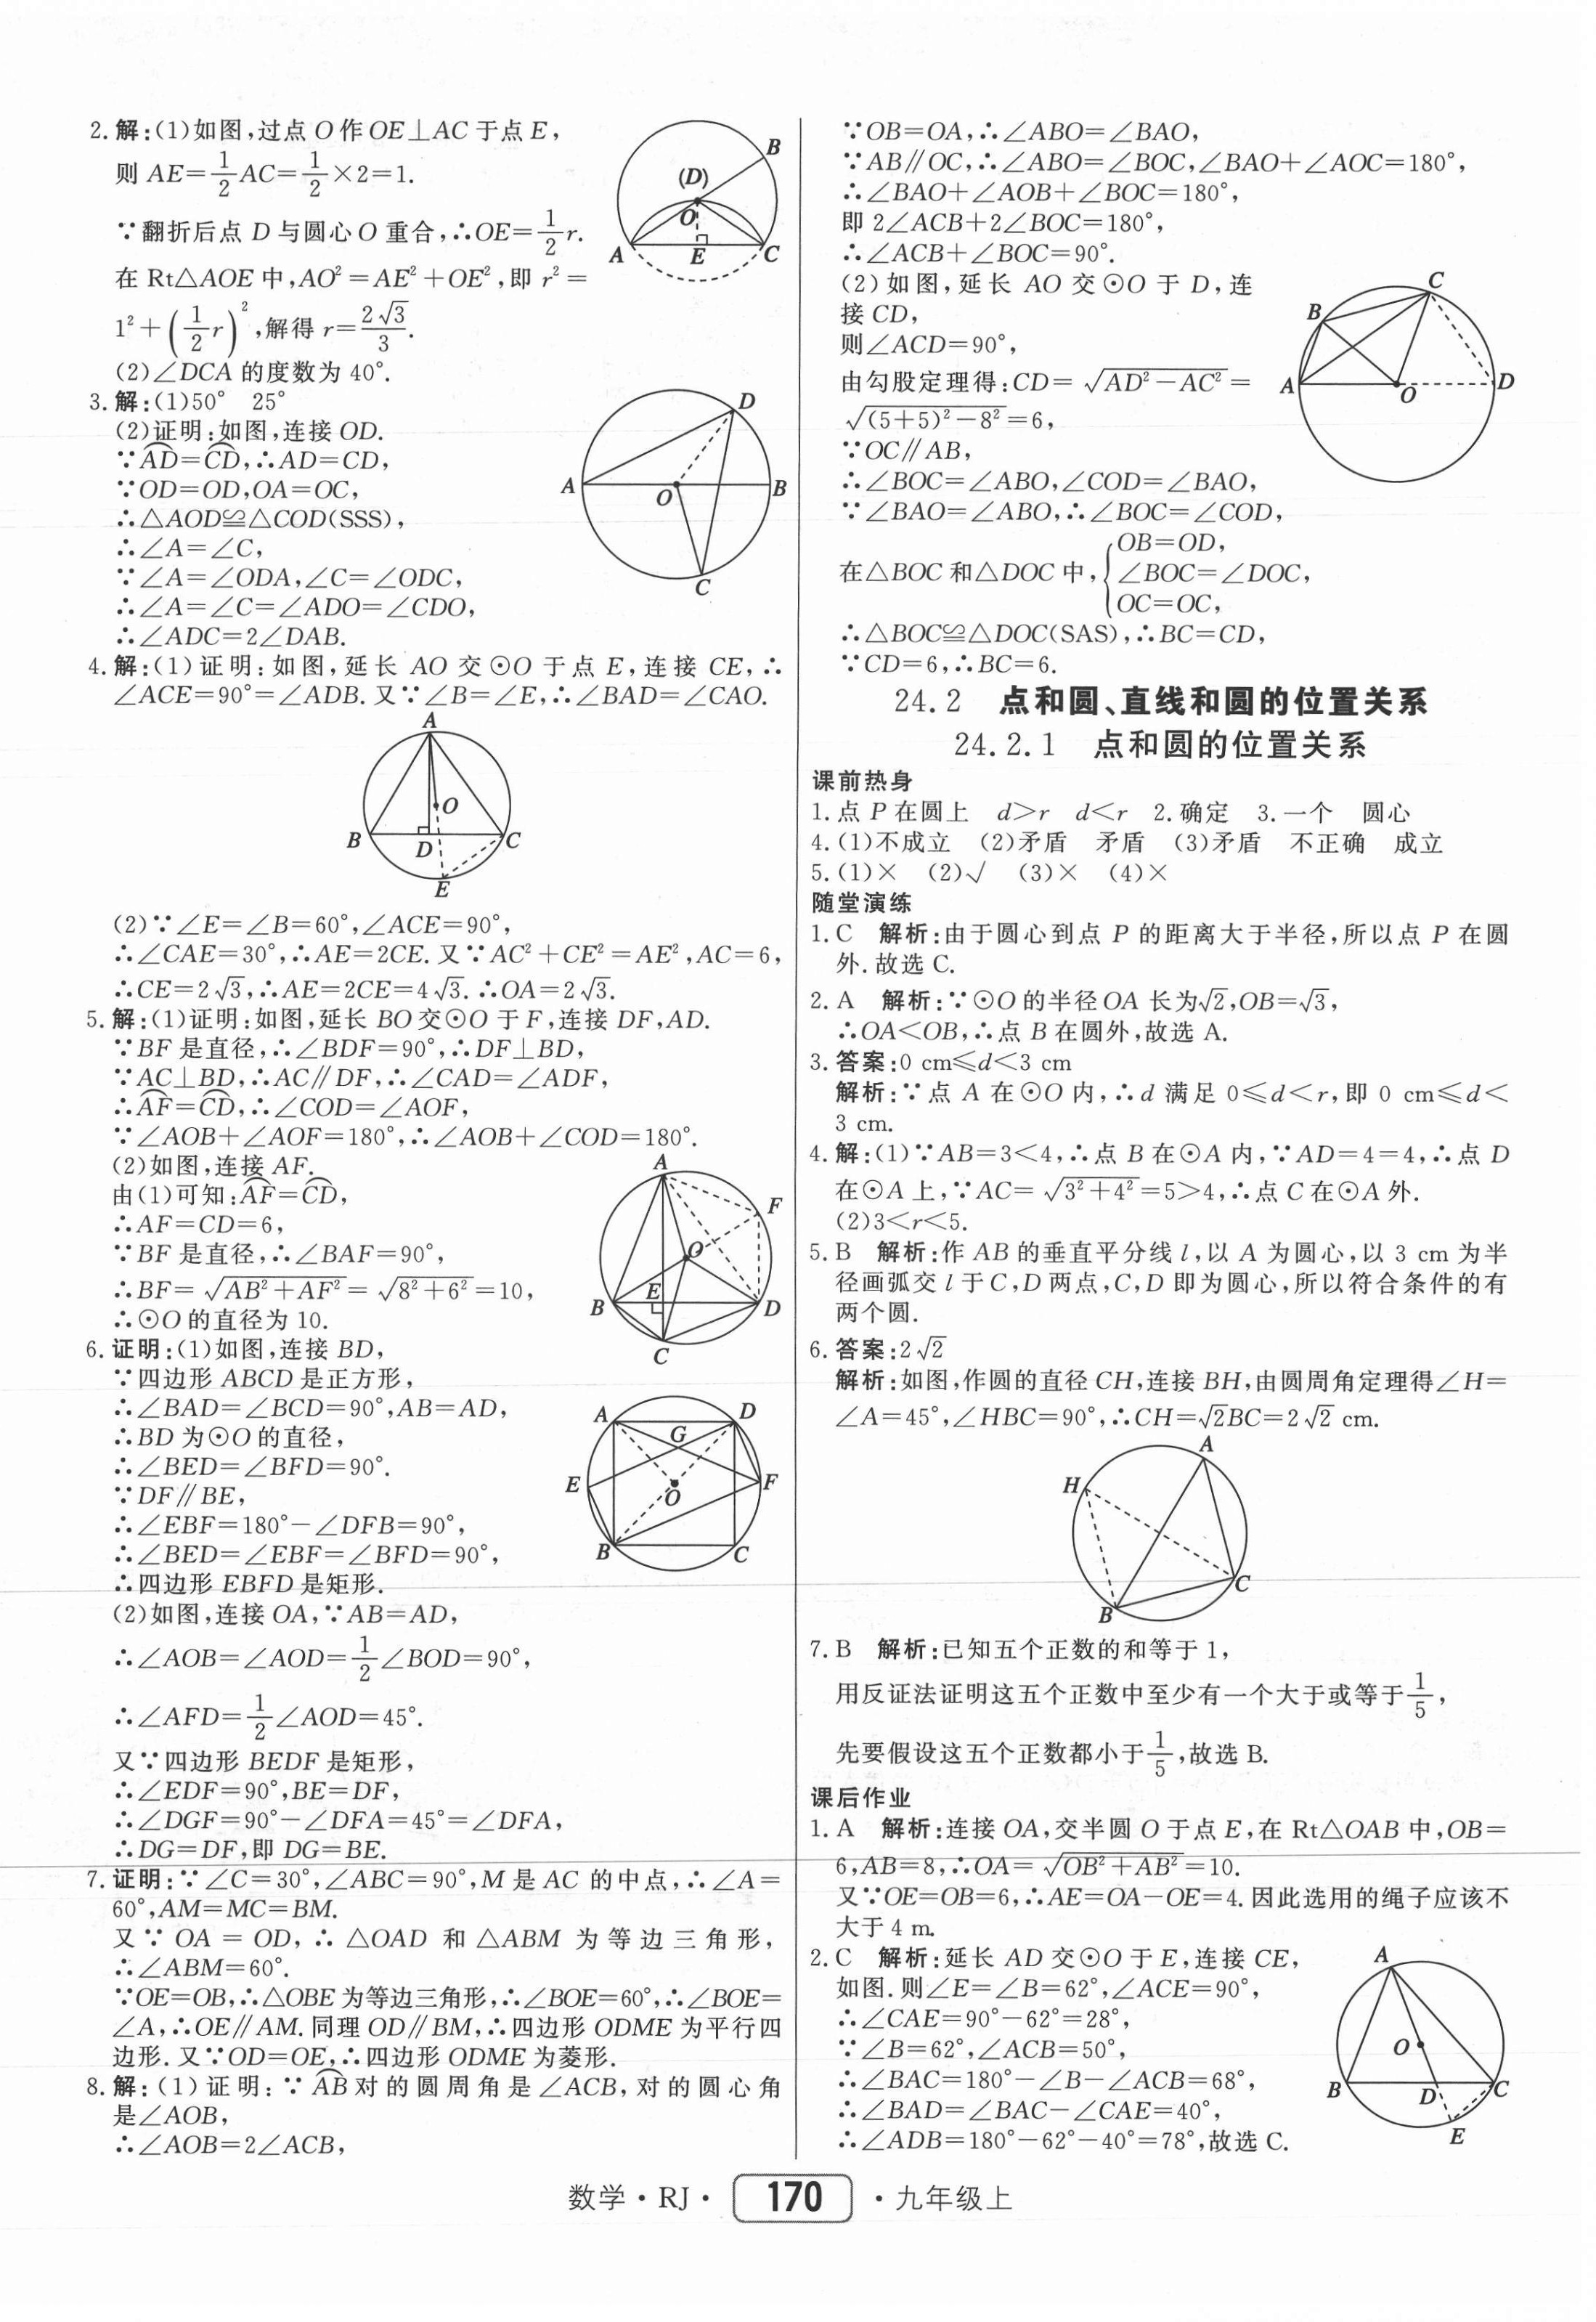 2.解:(1)如图,过点O作OE⊥AC于点E,
则AE=1/2AC=1/2×2=1.
∵翻折后点D与圆心O重合,∴OE=1/2r.
在Rt△AOE中,AO²=AE²+OE²,即r²=
1²+(1/2r)²,解得r=2√3/3.
(2)∠DCA的度数为40°.
3.解:(1)50° 25°
(2)证明:如图,连接OD.
∵A͡D=C͡D,∴AD=CD,
∵OD=OD,OA=OC,
∴△AOD≌△COD(SSS),
∴∠A=∠C,
∵∠A=∠ODA,∠C=∠ODC,
∴∠A=∠C=∠ADO=∠CDO,
∴∠ADC=2∠DAB.
4.解:(1)证明:如图,延长AO交⊙O于点E,连接CE,∴
∠ACE=90°=∠ADB.又∵∠B=∠E,∴∠BAD=∠CAO.
(2)∵∠E=∠B=60°,∠ACE=90°,
∴∠CAE=30°,∴AE=2CE.又∵AC²+CE²=AE²,AC=6,
∴CE=2√3,∴AE=2CE=4√3.∴OA=2√3.
5.解:(1)证明:如图,延长BO交⊙O于F,连接DF,AD.
∵BF是直径,∴∠BDF=90°,∴DF⊥BD,
∵AC⊥BD,∴AC∥DF,∴∠CAD=∠ADF,
∴A͡F=C͡D,∴∠COD=∠AOF,
∵∠AOB+∠AOF=180°,∴∠AOB+∠COD=180°.
(2)如图,连接AF.
由(1)可知:A͡F=C͡D,
∴AF=CD=6,
∵BF是直径,∴∠BAF=90°,
∴BF=√(AB²+AF²)=√(8²+6²)=10,
∴⊙O的直径为10.
6.证明:(1)如图,连接BD,
∵四边形ABCD是正方形,
∴∠BAD=∠BCD=90°,AB=AD,
∴BD为⊙O的直径,
∴∠BED=∠BFD=90°.
∵DF∥BE,
∴∠EBF=180°-∠DFB=90°,
∴∠BED=∠EBF=∠BFD=90°,
∴四边形EBFD是矩形.
(2)如图,连接OA,∵AB=AD,
∴∠AOB=∠AOD=1/2∠BOD=90°,
∴∠AFD=1/2∠AOD=45°.
又∵四边形BEDF是矩形,
∴∠EDF=90°,BE=DF,
∴∠DGF=90°-∠DFA=45°=∠DFA,
∴DG=DF,即DG=BE.
7.证明:∵∠C=30°,∠ABC=90°,M是AC的中点,∴∠A=
60°,AM=MC=BM.
又∵OA=OD,∴△OAD和△ABM为等边三角形,
∴∠ABM=60°.
∵OE=OB,∴△OBE为等边三角形,∴∠BOE=60°,∴∠BOE=
∠A,∴OE∥AM.同理OD∥BM,∴四边形ODME为平行四
边形.又∵OD=OE,∴四边形ODME为菱形.
8.解:(1)证明:∵A͡B对的圆周角是∠ACB,对的圆心角
是∠AOB,
∴∠AOB=2∠ACB,
∵OB=OA,∴∠ABO=∠BAO,
∵AB∥OC,∴∠ABO=∠BOC,∠BAO+∠AOC=180°,
∴∠BAO+∠AOB+∠BOC=180°,
即2∠ACB+2∠BOC=180°,
∴∠ACB+∠BOC=90°.
(2)如图,延长AO交⊙O于D,连
接CD,
则∠ACD=90°,
由勾股定理得:CD=√(AD²-AC²)=
√((5+5)²-8²)=6,
∵OC∥AB,
∴∠BOC=∠ABO,∠COD=∠BAO,
∵∠BAO=∠ABO,∴∠BOC=∠COD,
在△BOC和△DOC中,{OB=OD,
∠BOC=∠DOC,
OC=OC,
∴△BOC≌△DOC(SAS),∴BC=CD,
∵CD=6,∴BC=6.
24.2 点和圆、直线和圆的位置关系
24.2.1 点和圆的位置关系
课前热身
1.点P在圆上 d>r d<r 2.确定 3.一个 圆心
4.(1)不成立 (2)矛盾 矛盾 (3)矛盾 不正确 成立
5.(1)× (2)√ (3)× (4)×
随堂演练
1.C 解析:由于圆心到点P的距离大于半径,所以点P在圆
外.故选C.
2.A 解析:∵⊙O的半径OA长为√2,OB=√3,
∴OA<OB,∴点B在圆外,故选A.
3.答案:0 cm≤d<3 cm
解析:∵点A在⊙O内,∴d满足0≤d<r,即0 cm≤d<
3 cm.
4.解:(1)∵AB=3<4,∴点B在⊙A内,∵AD=4=4,∴点D
在⊙A上,∵AC=√(3²+4²)=5>4,∴点C在⊙A外.
(2)3<r<5.
5.B 解析:作AB的垂直平分线l,以A为圆心,以3 cm为半
径画弧交l于C,D两点,C,D即为圆心,所以符合条件的有
两个圆.
6.答案:2√2
解析:如图,作圆的直径CH,连接BH,由圆周角定理得∠H=
∠A=45°,∠HBC=90°,∴CH=√2BC=2√2 cm.
7.B 解析:已知五个正数的和等于1,
用反证法证明这五个正数中至少有一个大于或等于1/5,
先要假设这五个正数都小于1/5,故选B.
课后作业
1.A 解析:连接OA,交半圆O于点E,在Rt△OAB中,OB=
6,AB=8,∴OA=√(OB²+AB²)=10.
又∵OE=OB=6,∴AE=OA-OE=4.因此选用的绳子应该不
大于4 m.
2.C 解析:延长AD交⊙O于E,连接CE,
如图.则∠E=∠B=62°,∠ACE=90°,
∴∠CAE=90°-62°=28°,
∵∠B=62°,∠ACB=50°,
∴∠BAC=180°-∠B-∠ACB=68°,
∴∠BAD=∠BAC-∠CAE=40°,
∴∠ADB=180°-62°-40°=78°,故选C.
数学·RJ· 170 ·九年级上